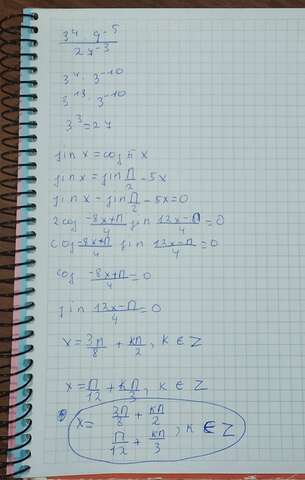 3⁴ · 9⁻⁵
27⁻³
3⁴ · 3⁻¹⁰
3¹³ · 3⁻¹⁰
3³ = 27
sin x = cos 5 x
sin x = sin П/2 - 5x
sin x - sin П/2 - 5x = 0
2 cos -8x+П/4 sin 12x-П/4 = 0
cos -8x+П/4 sin 12x-П/4 = 0
cos -8x+П/4 = 0
sin 12x-П/4 = 0
x = 3П/8 + кП/2, к ∈ Z
x = П/12 + кП/3, к ∈ Z
x = 3П/8 + кП/2
П/12 + кП/3, к ∈ Z